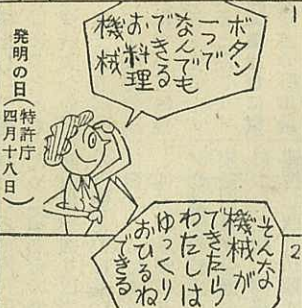 1
ボタン
一つで
なんでも
できる
お料理
機械
発明の日(特許庁
四月十八日)
2
そんな
機械が
できたら
わたしは
ゆっくり
おひるね
できる